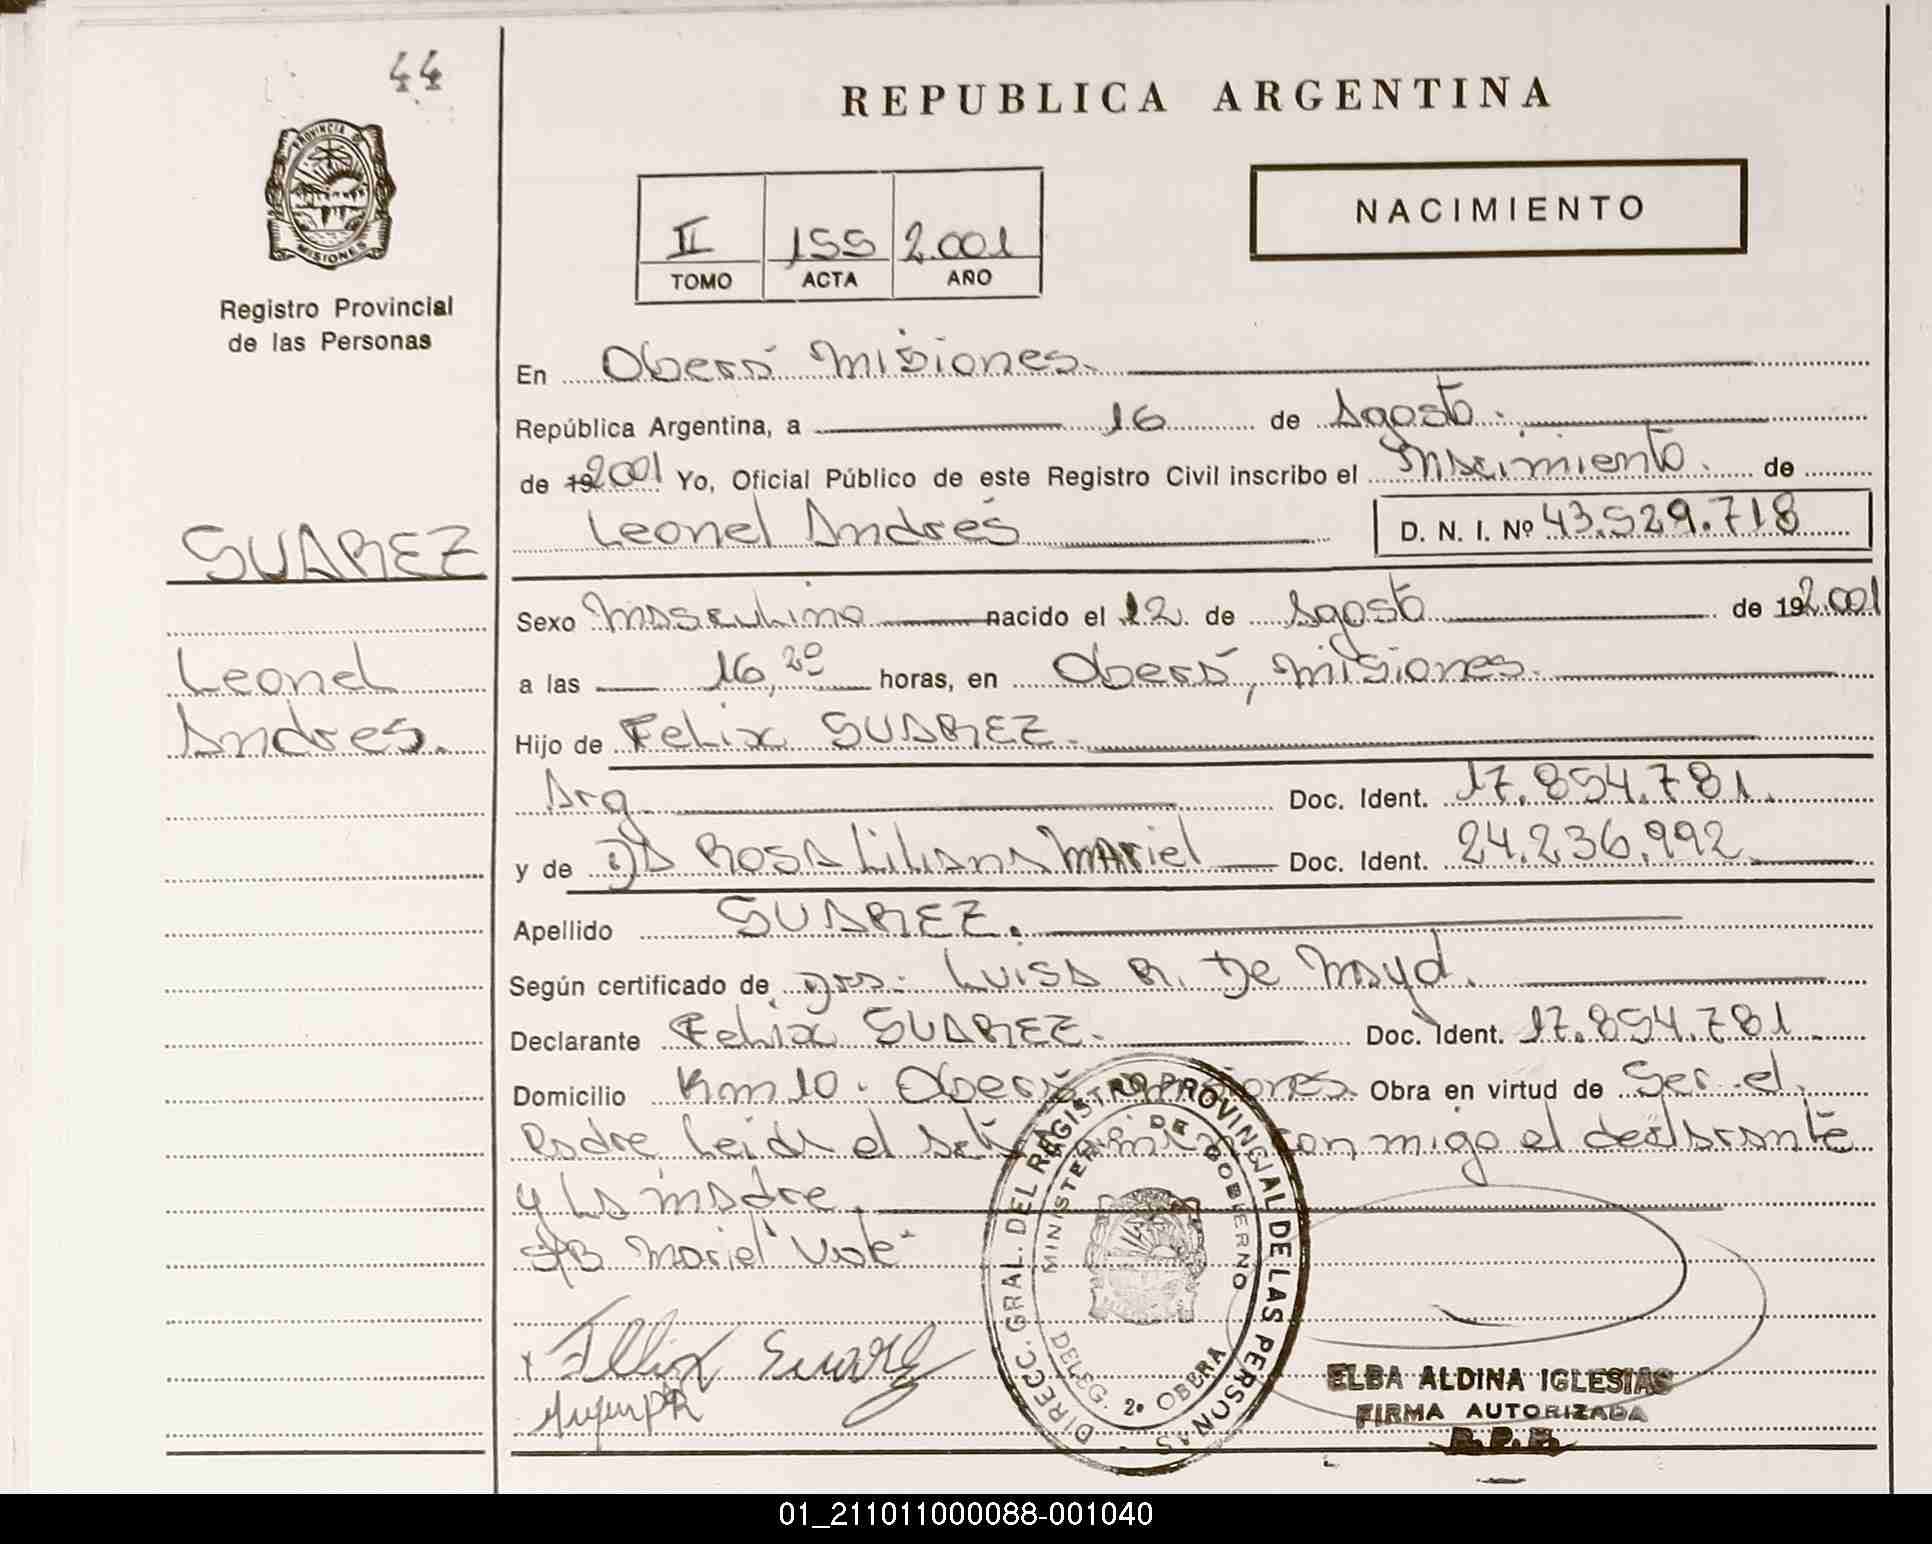 44
REPUBLICA ARGENTINA
PROVINCIA D
MISIONES
Registro Provincial
de las Personas
II 155 2.001
TOMO ACTA AÑO
NACIMIENTO
En Oberá Misiones.
República Argentina, a 16 de Agosto.
de 19 2001 Yo, Oficial Público de este Registro Civil inscribo el Nacimiento. de
Leonel Andrés D. N. I. Nº 43.529.718
SUAREZ
Leonel
Andres.
Sexo Masculino nacido el 12 de Agosto de 19 2.001
a las 16,20 horas, en Oberá, Misiones.
Hijo de Felix SUAREZ.
Arg. Doc. Ident. 17.854.781.
y de Rosa Liliana Mariel Doc. Ident. 24.236.992
Apellido SUAREZ.
Según certificado de Dra. Luisa R. De
Declarante Felix SUAREZ. Doc. Ident. 17.854.781
Domicilio Km 10. Oberá Misiones. Obra en virtud de Ser el
Padre Leida el acta conmigo el declarante
y La madre.
Mariel "Vale"
x Felix Suarez
DIRECC. GRAL. DEL REGISTRO PROVINCIAL DE LAS PERSONAS
MINISTERIO DE GOBIERNO
DELEG. 2º OBERA
ELBA ALDINA IGLESIAS
FIRMA AUTORIZADA
R.P.P.
01_211011000088-001040